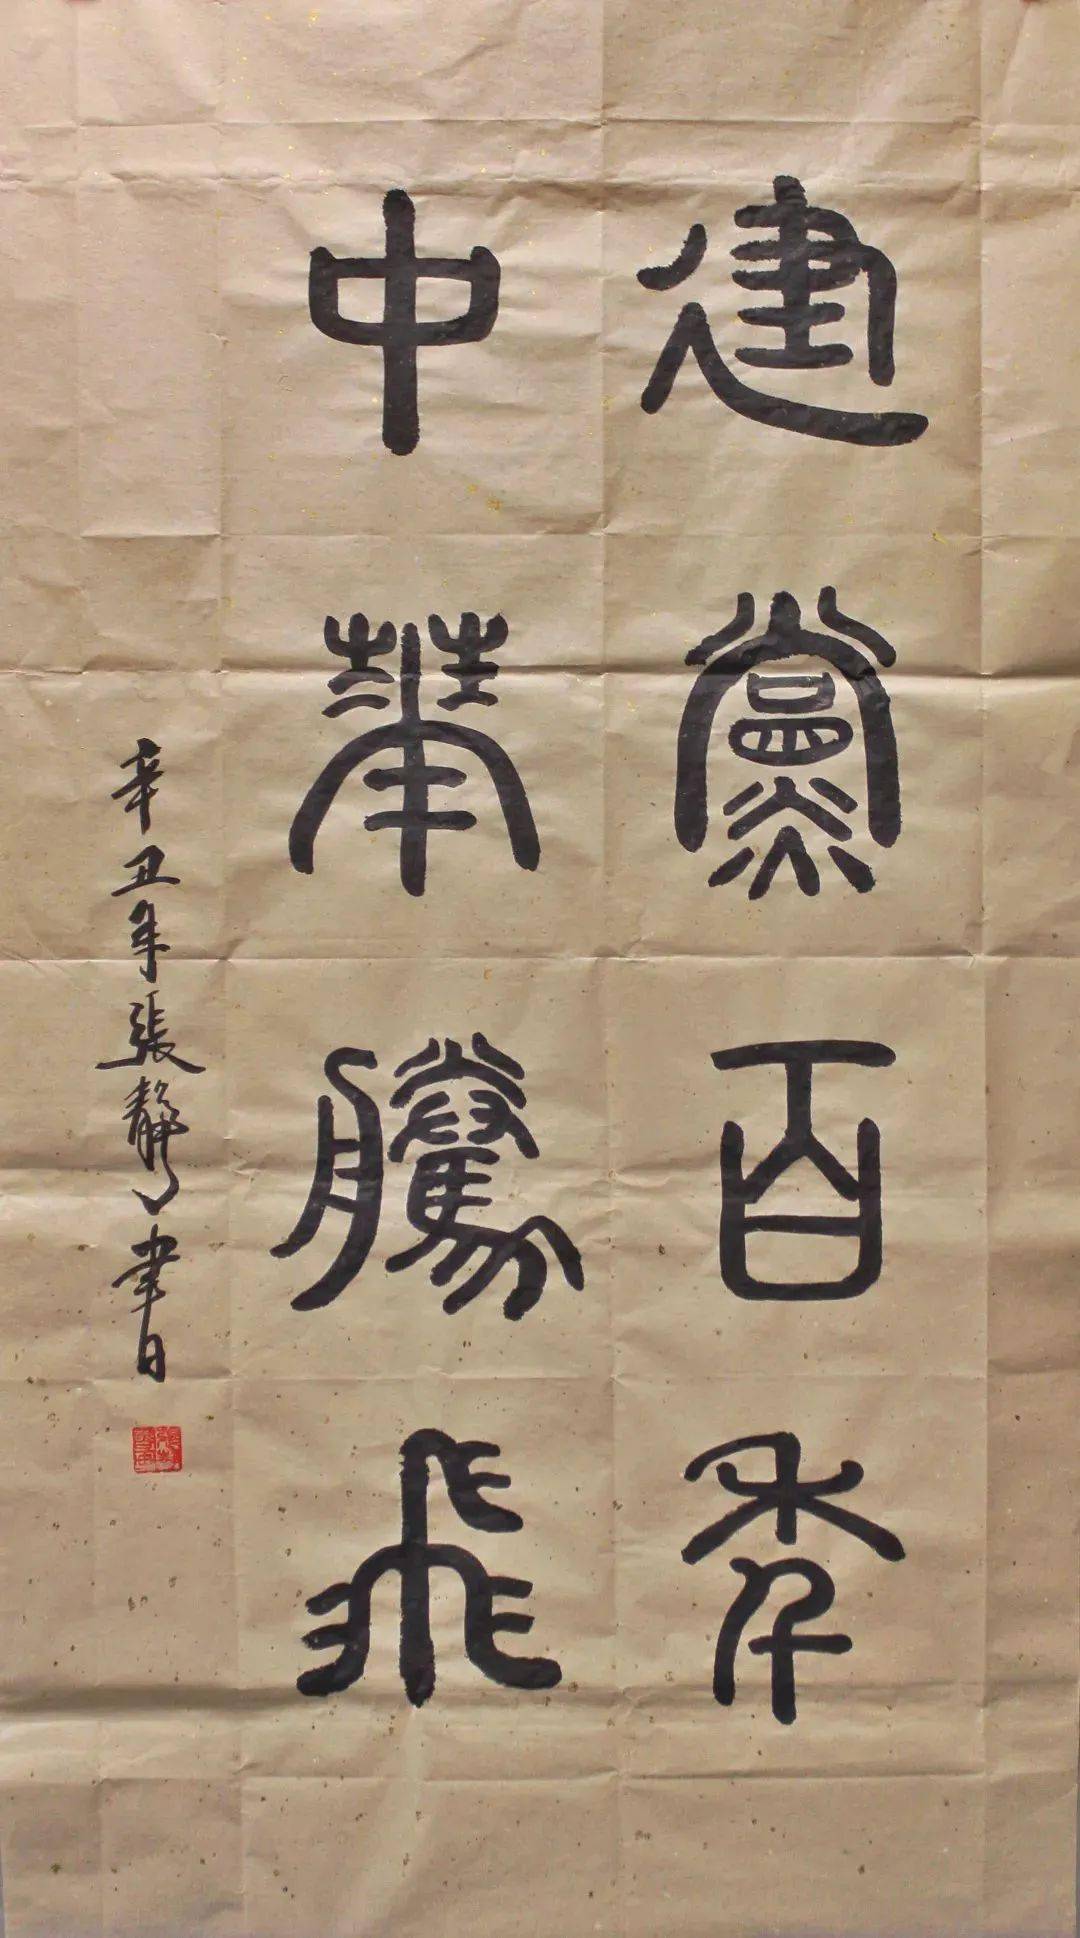 建黨百年
中華騰飛
辛丑年張靜書